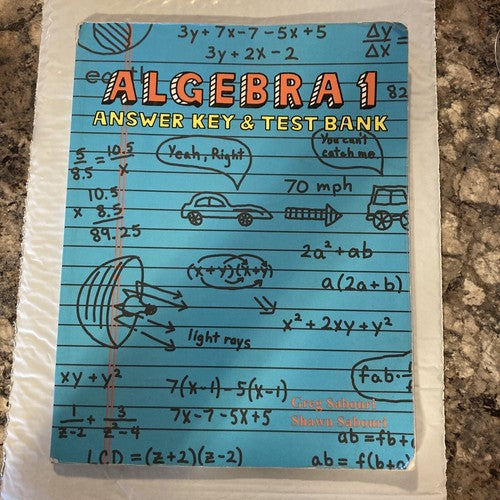 3y + 7x - 7 - 5x + 5
3y + 2x - 2
Δy =
Δx
earth
82
ALGEBRA 1
ANSWER KEY & TEST BANK
5/8.5 = 10.5/x
Yeah, Right
You can't
catch me
70 mph
10.5
x 8.5
89.25
2a² + ab
(x+y)(x+y)
a(2a+b)
x² + 2xy + y²
light rays
xy + y²
7(x-1) - 5(x-1)
fab.
7x - 7 - 5x + 5
Greg Sabouri
Shawn Sabouri
1/z-2 + 3/z²-4
ab = fb +
LCD = (z+2)(z-2)
ab = f(b+a)